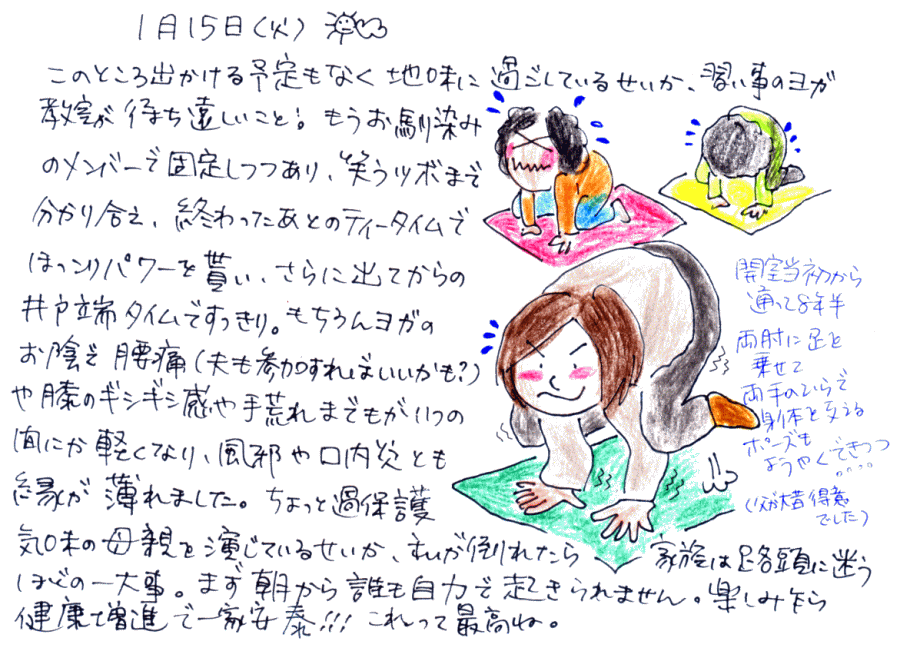 1月15日(火)
このところ出かける予定もなく地味に過ごしているせいか、習い事のヨガ
教室が待ち遠しいこと!もうお馴染み
のメンバーで固定しつつあり、笑うツボまで
分かり合え、終わったあとのティータイムで
ほっこりパワーを貰い、さらに出てからの
井戸端タイムですっきり。もちろんヨガの
お陰で腰痛(夫も参加すればいいかも?)
や膝のギシギシ感や手荒れまでもがいつの
間にか軽くなり、風邪や口内炎とも
縁が薄れました。ちょっと過保護
気味の母親を演じているせいか、私が倒れたら家族は路頭に迷う
ほどの一大事。まず朝から誰も自力で起きられません。楽しみながら
健康増進で一家安泰!!!これって最高ね。
開室当初から
通って8年半
両肘に足を
乗せて
両手のひらで
身体を支える
ポーズも
ようやくできつつ
‥‥
(父が大昔得意
でした)